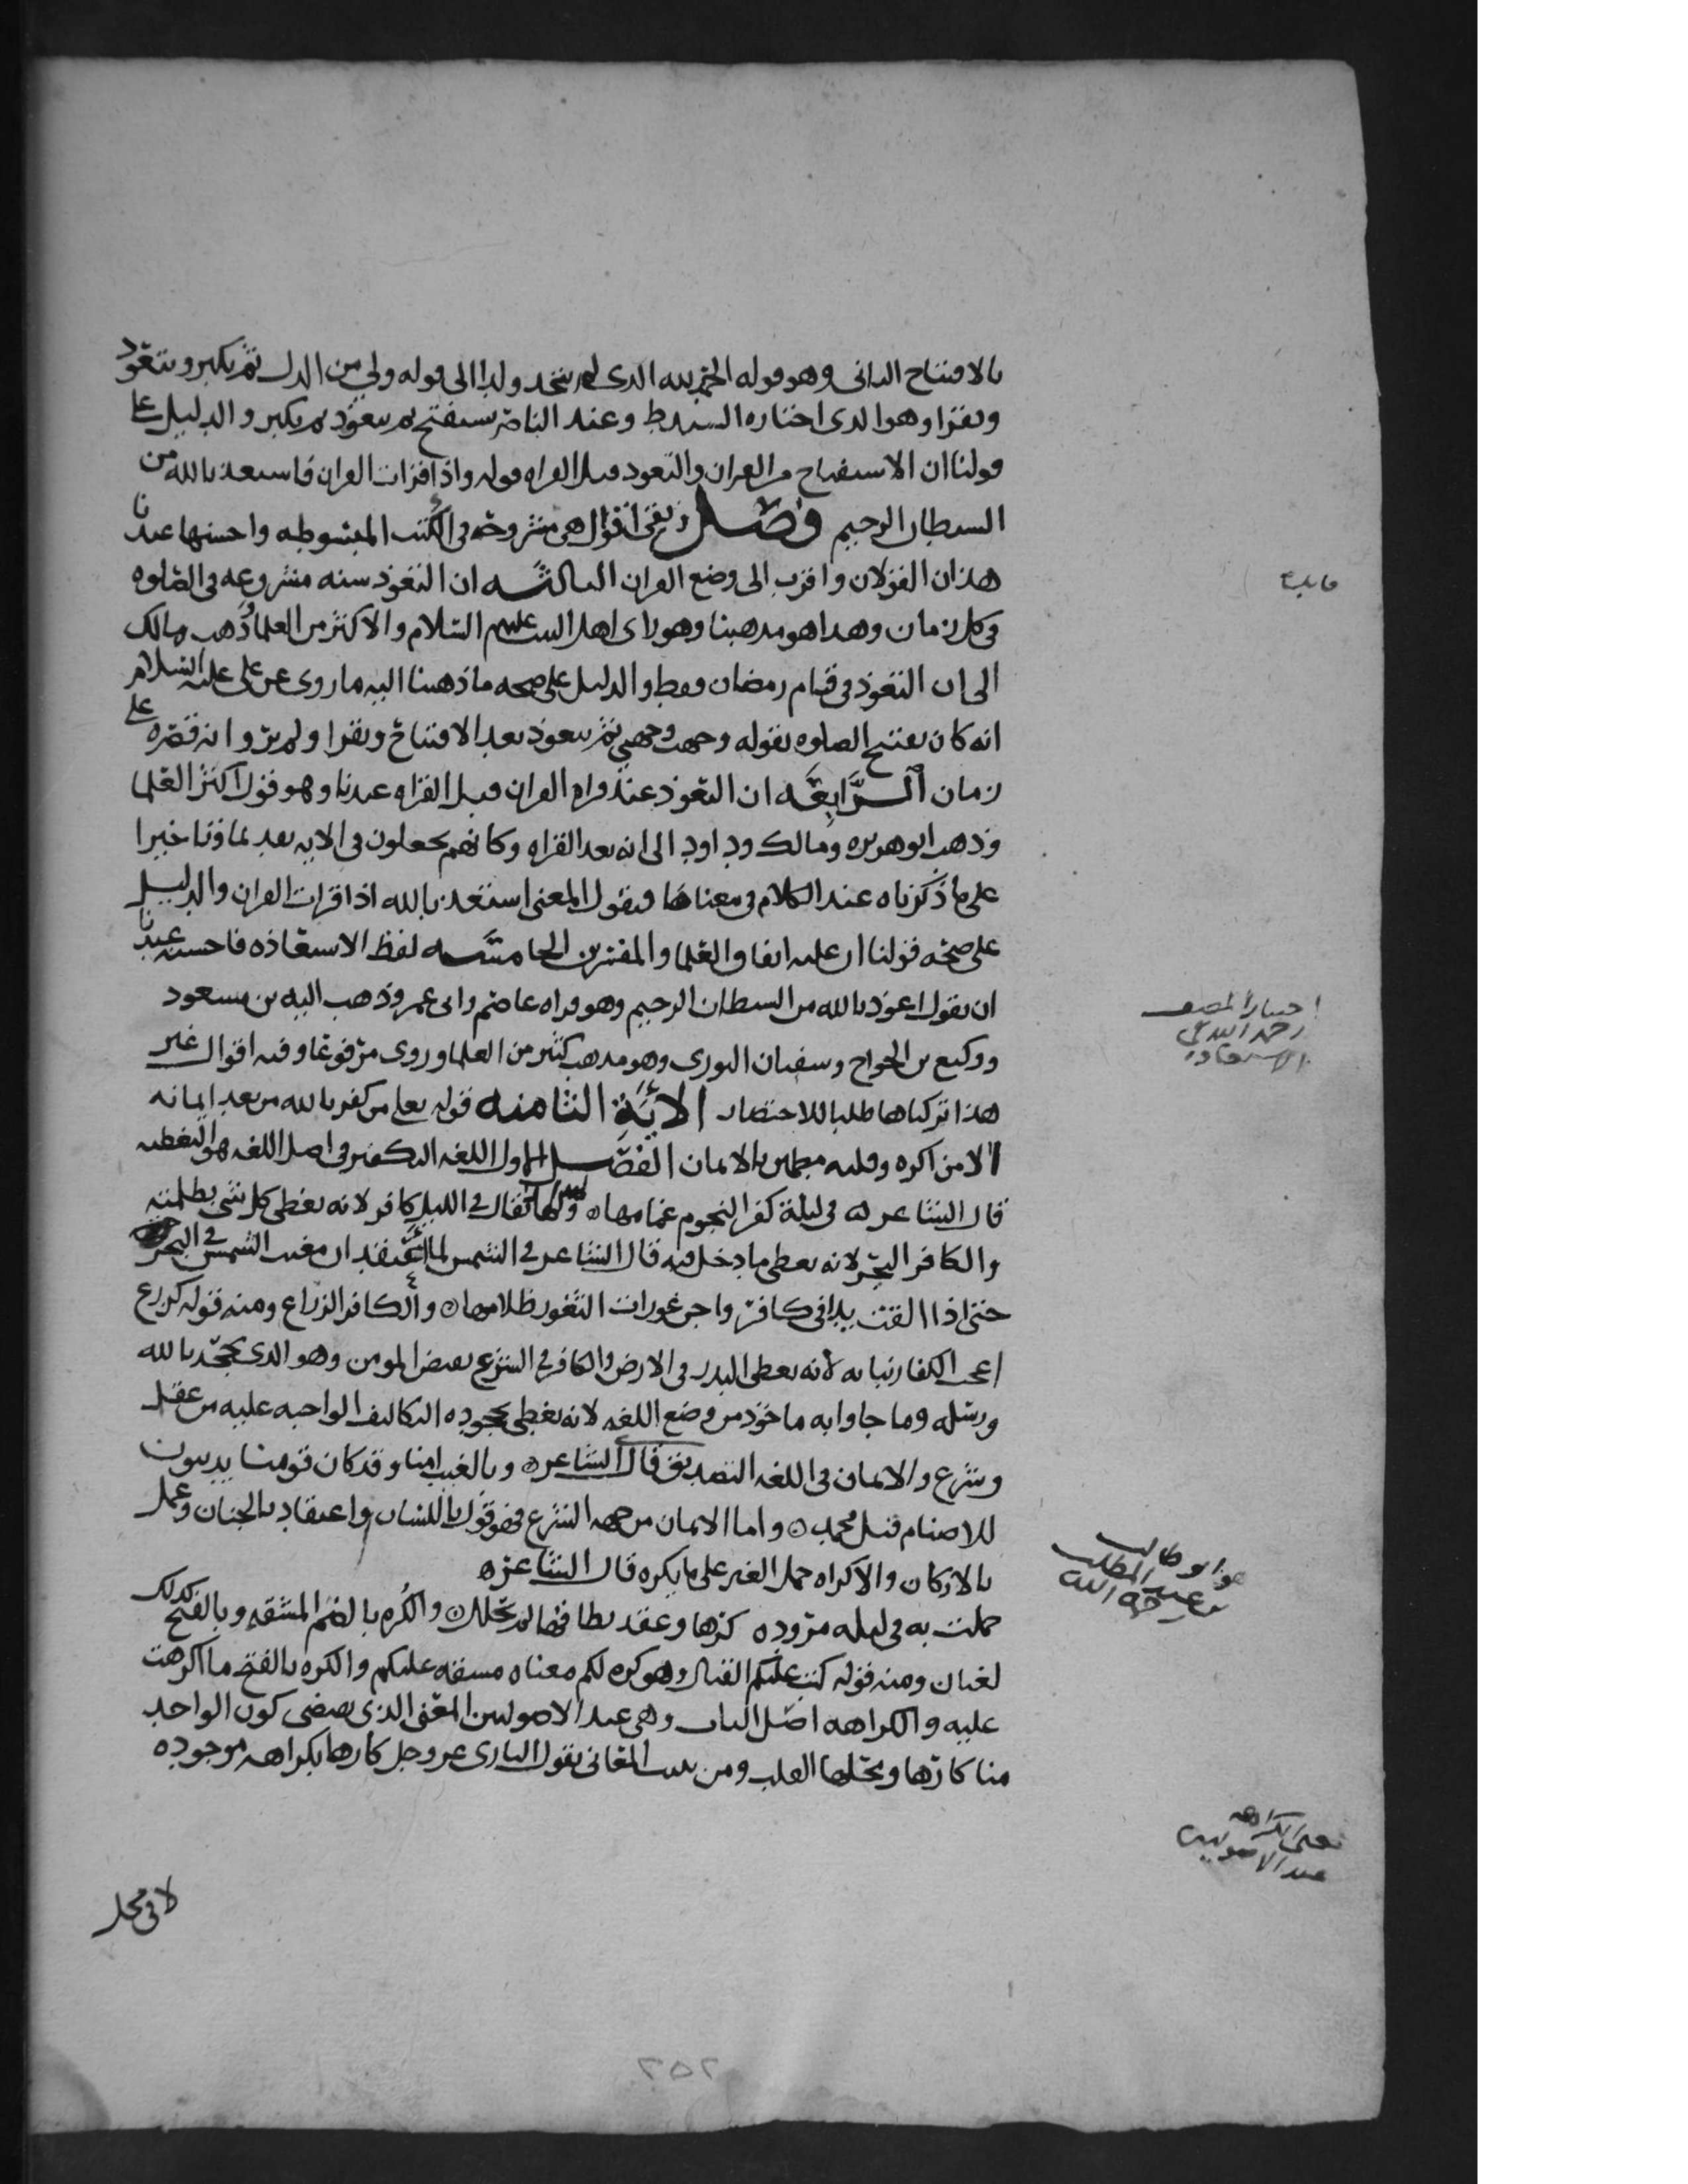 بالافتتاح الثاني وهو قوله الحمد لله الذي لم يتخذ ولدا الى قوله ولي من الذل ثم يكبر ويتعوذ
ويقرا وهو الذي اختاره السيد ط وعند الناصر يستفتح ثم يتعوذ ثم يكبر والدليل على
قولنا ان الاستفتاح من القران والتعوذ قبل القراه قوله واذا قرات القران فاستعذ بالله من
الشيطان الرجيم فصل وبقي اقوال هي مشروحه في الكتب المبسوطه واحسنها عندنا
هذان القولان واقرب الى وضع القران الثالثه ان التعوذ سنه مشروعه في الصلوه
في كل زمان وهذا هو مذهبنا وهو راي اهل البيت عليهم السلام والاكثر من العلما وذهب مالك
الى ان التعوذ في قيام رمضان فقط والدليل على صحه ما ذهبنا اليه ما روي عن علي عليه السلام
انه كان يفتتح الصلوه بقوله وجهت وجهي ثم يتعوذ بعد الافتتاح ويقرا ولم يرو انه قصره على
زمان الرابعه ان التعوذ عند قراه القران قبل القراه عندنا وهو قول اكثر العلما
وذهب ابو هريره ومالك وداود الى انه بعد القراه وكانهم يجعلون في الايه تقديما وتاخيرا
على ما ذكرناه عند الكلام في معناها فيقول المعنى استعذ بالله اذا قرات القران والدليل
على صحه قولنا ان عليه اتفاق العلما والمفسرين الخامسه لفظ الاستعاذه فاحسنه عندنا
ان يقول اعوذ بالله من الشيطان الرجيم وهو قراه عاصم وابي عمر وذهب اليه بن مسعود
ووكيع بن الجراح وسفيان الثوري وهو مذهب كثير من العلما وروي مرفوعا وفيه اقوال غير
هذا تركناها طلبا للاختصار الايه الثامنه قوله تعلى من كفر بالله من بعد ايمانه
الا من اكره وقلبه مطمئن بالايمان الفصل الاول اللغه الكفر في اصل اللغه هو التغطيه
قال الشاعر في ليلة كفر النجوم غمامها ويقال في الليل كافر لانه يغطي كل شي بظلمته
والكافر البحر لانه يغطي ما دخل فيه قال الشاعر في الشمس لما اعتقد ان مغيب الشمس في البحر
حتى اذا القت يدا في كافر واجن عورات الثغور ظلامها والكافر الزراع ومنه قوله كزرع
اعجب الكفار نباته لانه يغطي البذر في الارض والكافر في الشرع نقيض المومن وهو الذي يجحد بالله
ورسله وما جاوا به ماخوذ من وضع اللغه لانه يغطي بجحوده التكاليف الواجبه عليه من عقل
وشرع والايمان في اللغه التصديق قال الشاعر وبالغيب امنا وقد كان قومنا يدينون
للاصنام قبل محمد واما الايمان من جهه الشرع فهو قول باللسان واعتقاد بالجنان وعمل
بالاركان والاكراه حمل الغير على ما يكره قال الشاعر
حملت به في ليله مزوده كرها وعقد نطاقها لم يحلل والكره بالضم المشقه وبالفتح كذلك
لغتان ومنه قوله كتب عليكم القتال وهو كره لكم معناه مشقه عليكم والكره بالفتح ما اكرهت
عليه والكراهه اصل الباب وهي عند الاصوليين المعنى الذي يقتضي كون الواحد
منا كارها ويحلها القلب ومن يثبت المعاني يقول الباري عز وجل كارها بكراهه موجوده
لا في محل
فايده
اختيار المصنف
رحمه الله في
الاستعاذه
هو ابو طالب
بن عبد المطلب
رحمه الله
معنى الكراهه
عند الاصوليين
٢٥٢